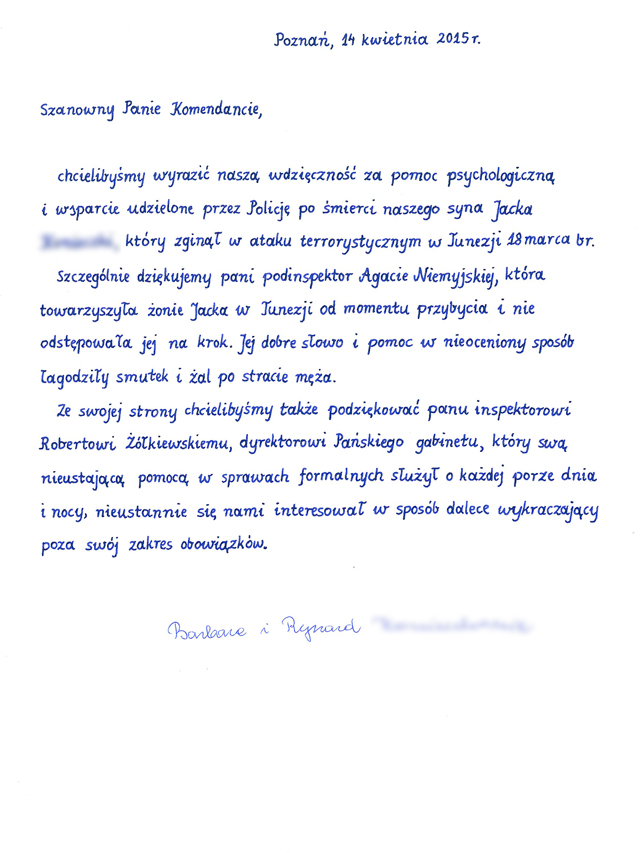 Poznań, 14 kwietnia 2015 r.
Szanowny Panie Komendancie,
chcielibyśmy wyrazić naszą wdzięczność za pomoc psychologiczną
i wsparcie udzielone przez Policję po śmierci naszego syna Jacka
który zginął w ataku terrorystycznym w Tunezji 18 marca br.
Szczególnie dziękujemy pani podinspektor Agacie Niemyjskiej, która
towarzyszyła żonie Jacka w Tunezji od momentu przybycia i nie
odstępowała jej na krok. Jej dobre słowo i pomoc w nieoceniony sposób
łagodziły smutek i żal po stracie męża.
Ze swojej strony chcielibyśmy także podziękować panu inspektorowi
Robertowi Żółkiewskiemu, dyrektorowi Pańskiego gabinetu, który swą
nieustającą pomocą w sprawach formalnych służył o każdej porze dnia
i nocy, nieustannie się nami interesował w sposób dalece wykraczający
poza swój zakres obowiązków.
Barbara i Ryszard